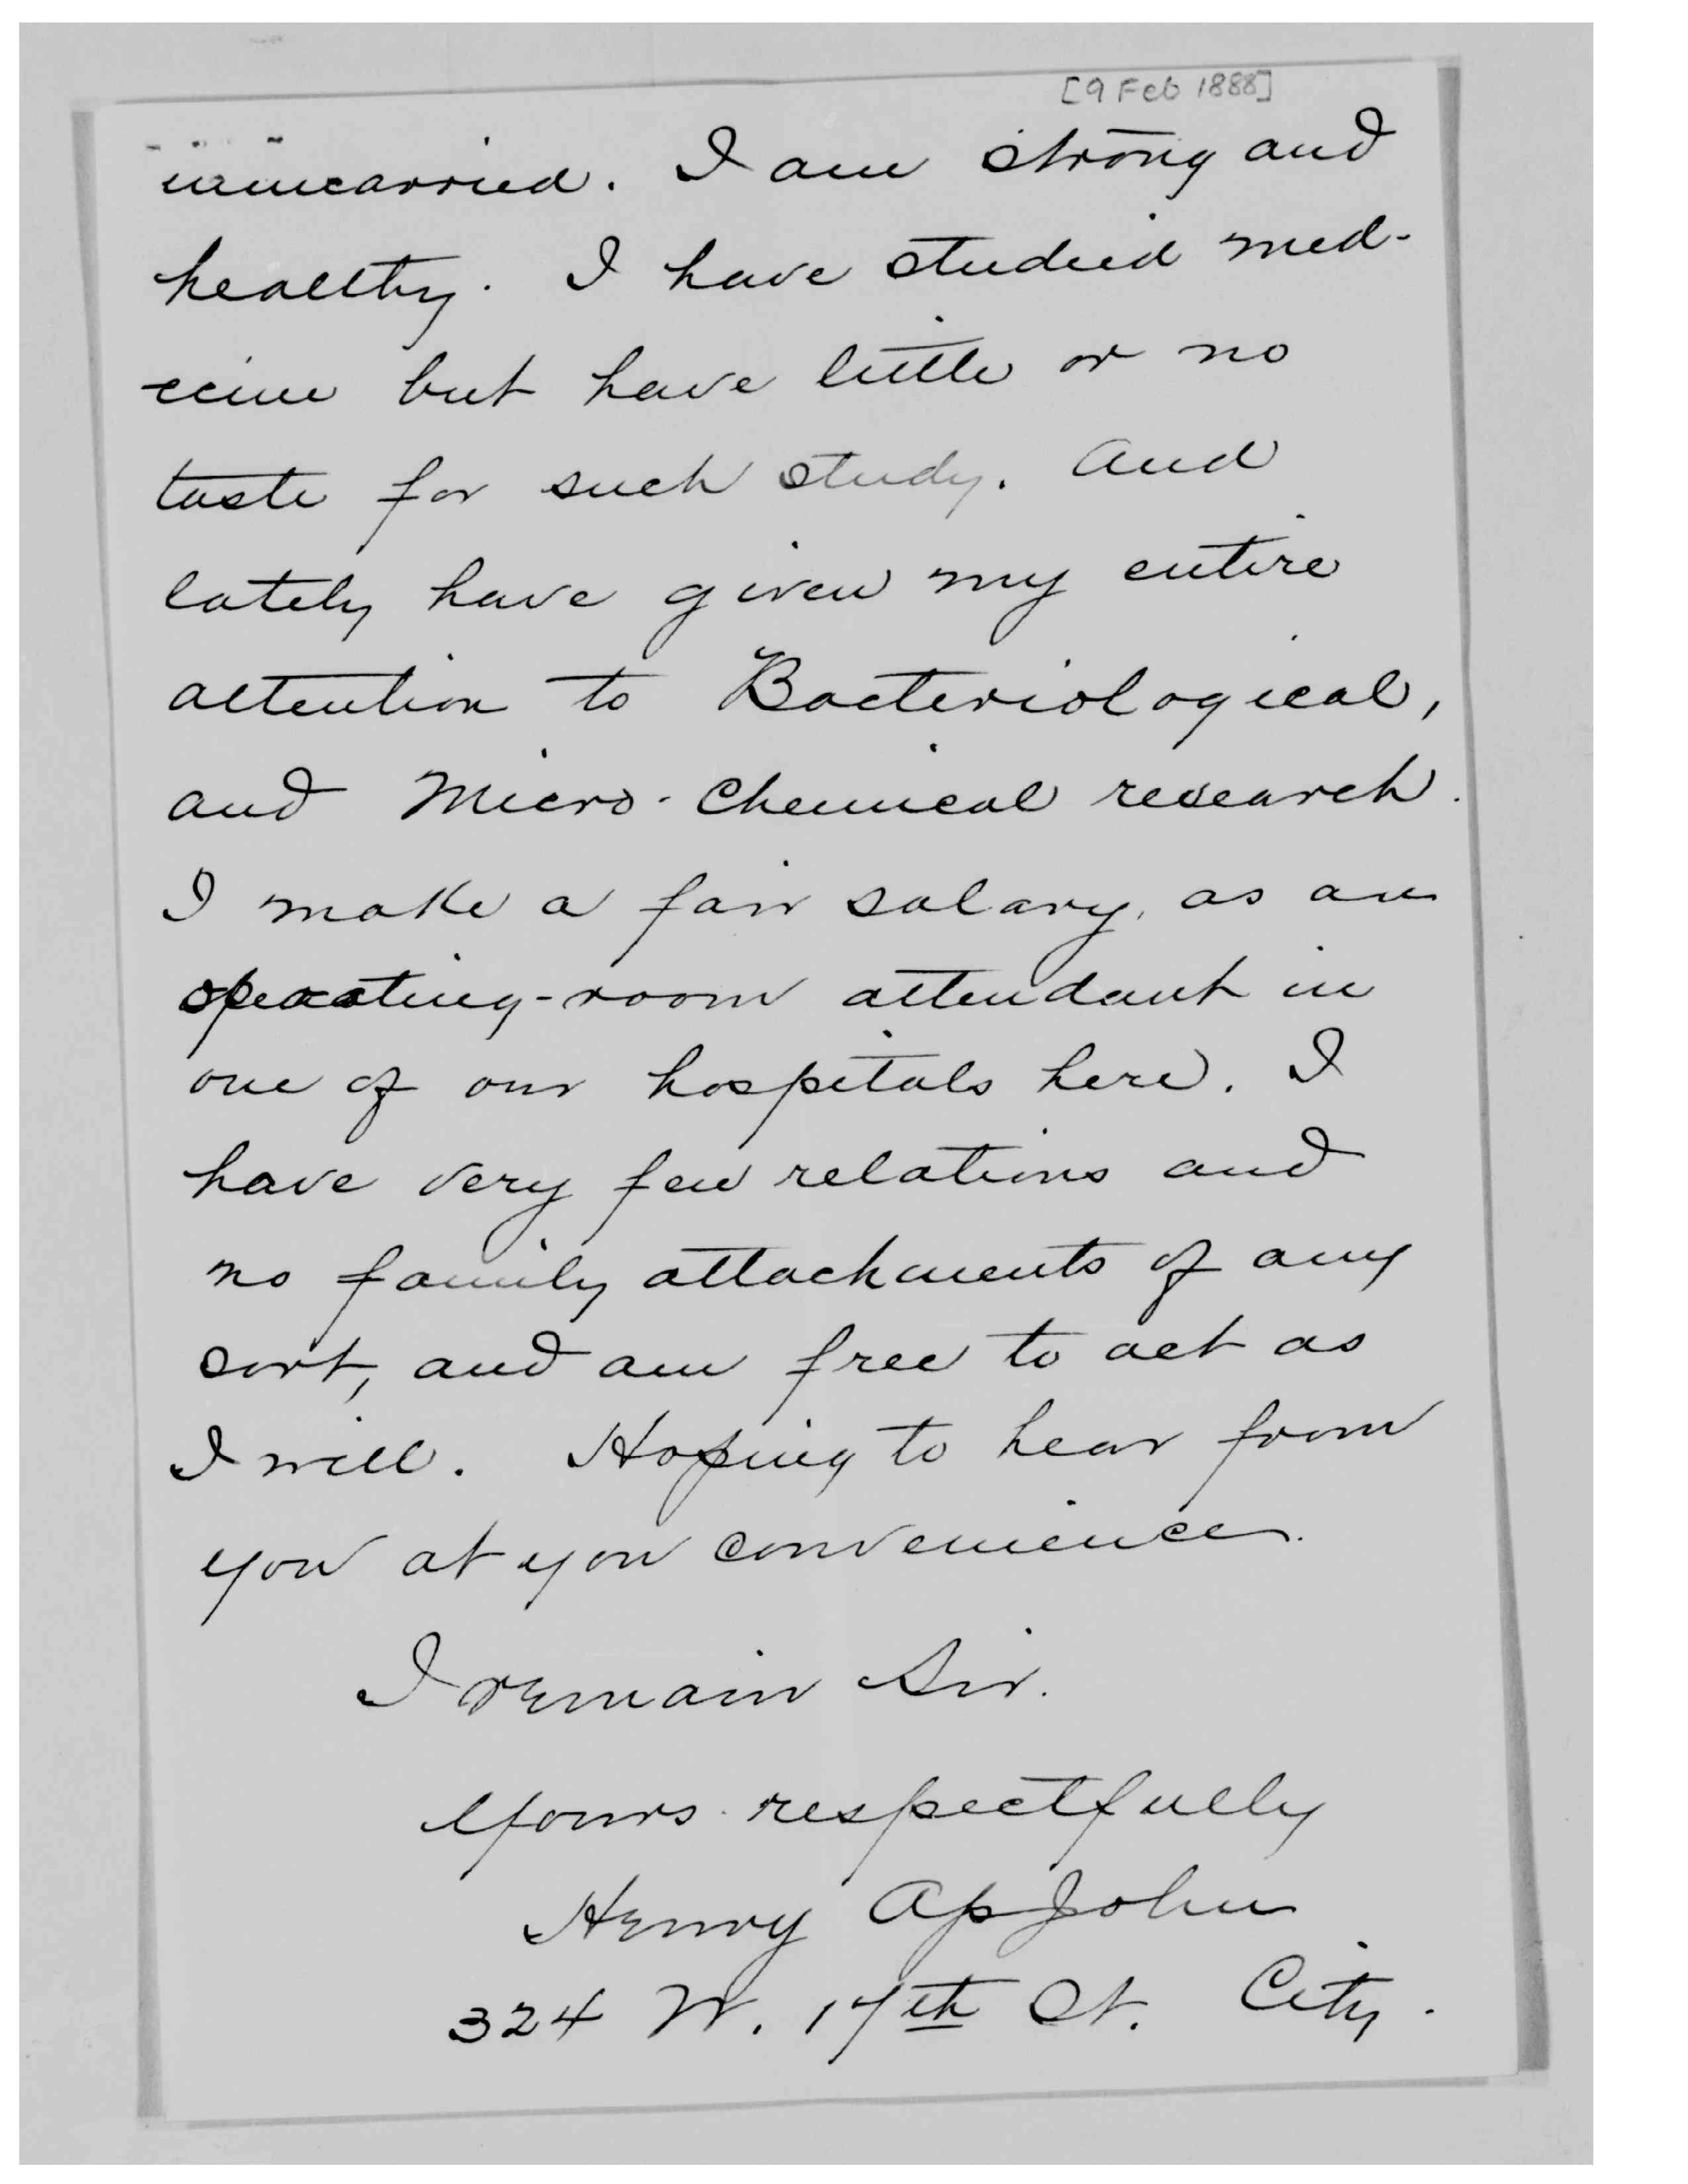 [9 Feb 1888]
unmarried. I am strong and
healthy. I have studied med-
icine but have little or no
taste for such study. And
lately have given my entire
attention to Bacteriological,
and Micro-Chemical research.
I make a fair salary, as an
operating-room attendant in
one of our hospitals here. I
have very few relations and
no family attachments of any
sort, and am free to act as
I will. Hoping to hear from
you at you convenience.
I remain Sir.
Yours respectfully
Henry ApJohn
324 W. 17th St. City.